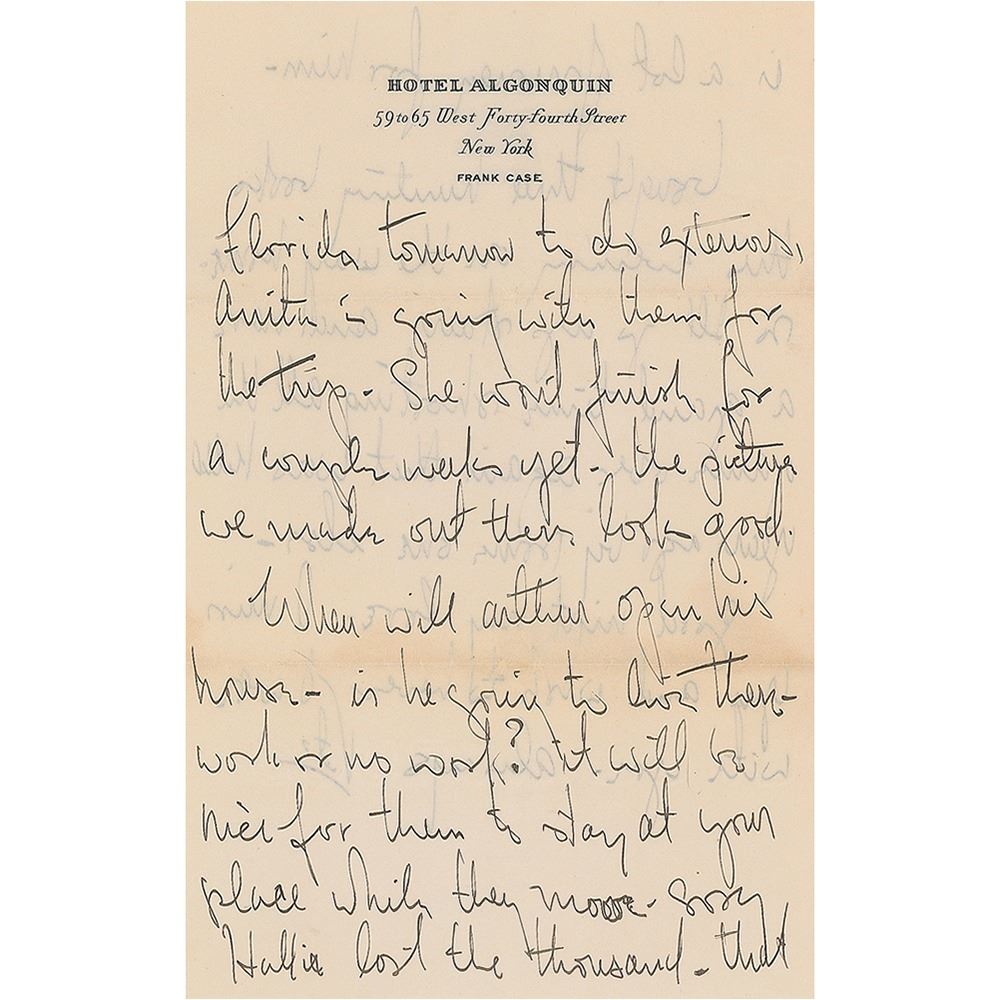 HOTEL ALGONQUIN
59 to 65 West Forty-fourth Street
New York
FRANK CASE
Florida tomorrow to do exteriors,
Anita is going with them for
the trip - She won't finish for
a couple weeks yet - the picture
we made out there looks good.
When will Arthur open his
house - is he going to live there -
work or no work? it will be
nice for them to stay at your
place while they move - sorry
lost the thousand - that